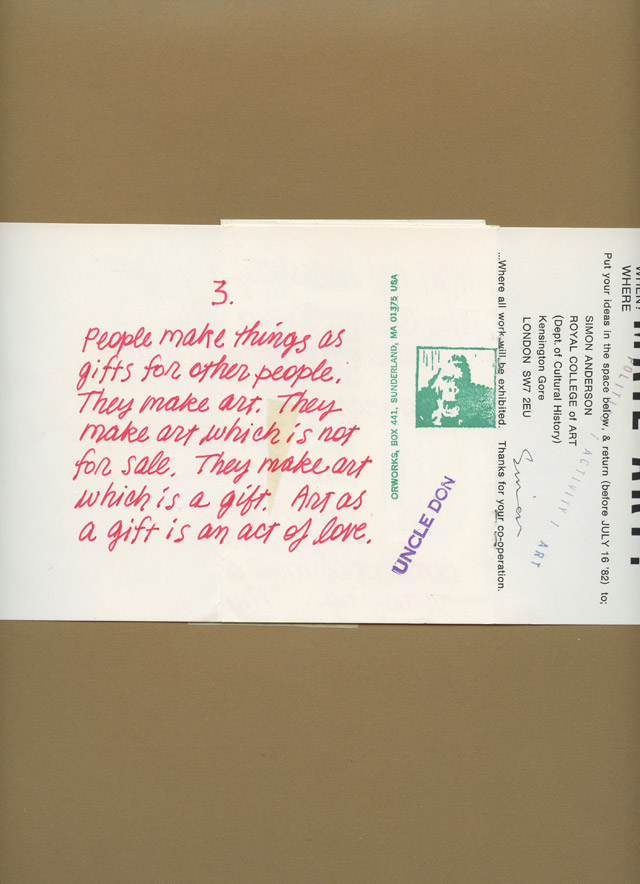 3.
People make things as
gifts for other people.
They make art. They
make art which is not
for sale. They make art
which is a gift. Art as
a gift is an act of love.
ORWORKS, BOX 441, SUNDERLAND, MA 01375 USA
UNCLE DON
WHEN?
WHERE
Put your ideas in the space below, & return (before JULY 16 '82) to;
SIMON ANDERSON
ROYAL COLLEGE of ART
(Dept of Cultural History)
Kensington Gore
LONDON SW7 2EU
...Where all work will be exhibited. Thanks for your co-operation.
Simon
/ ACTIVITY / ART